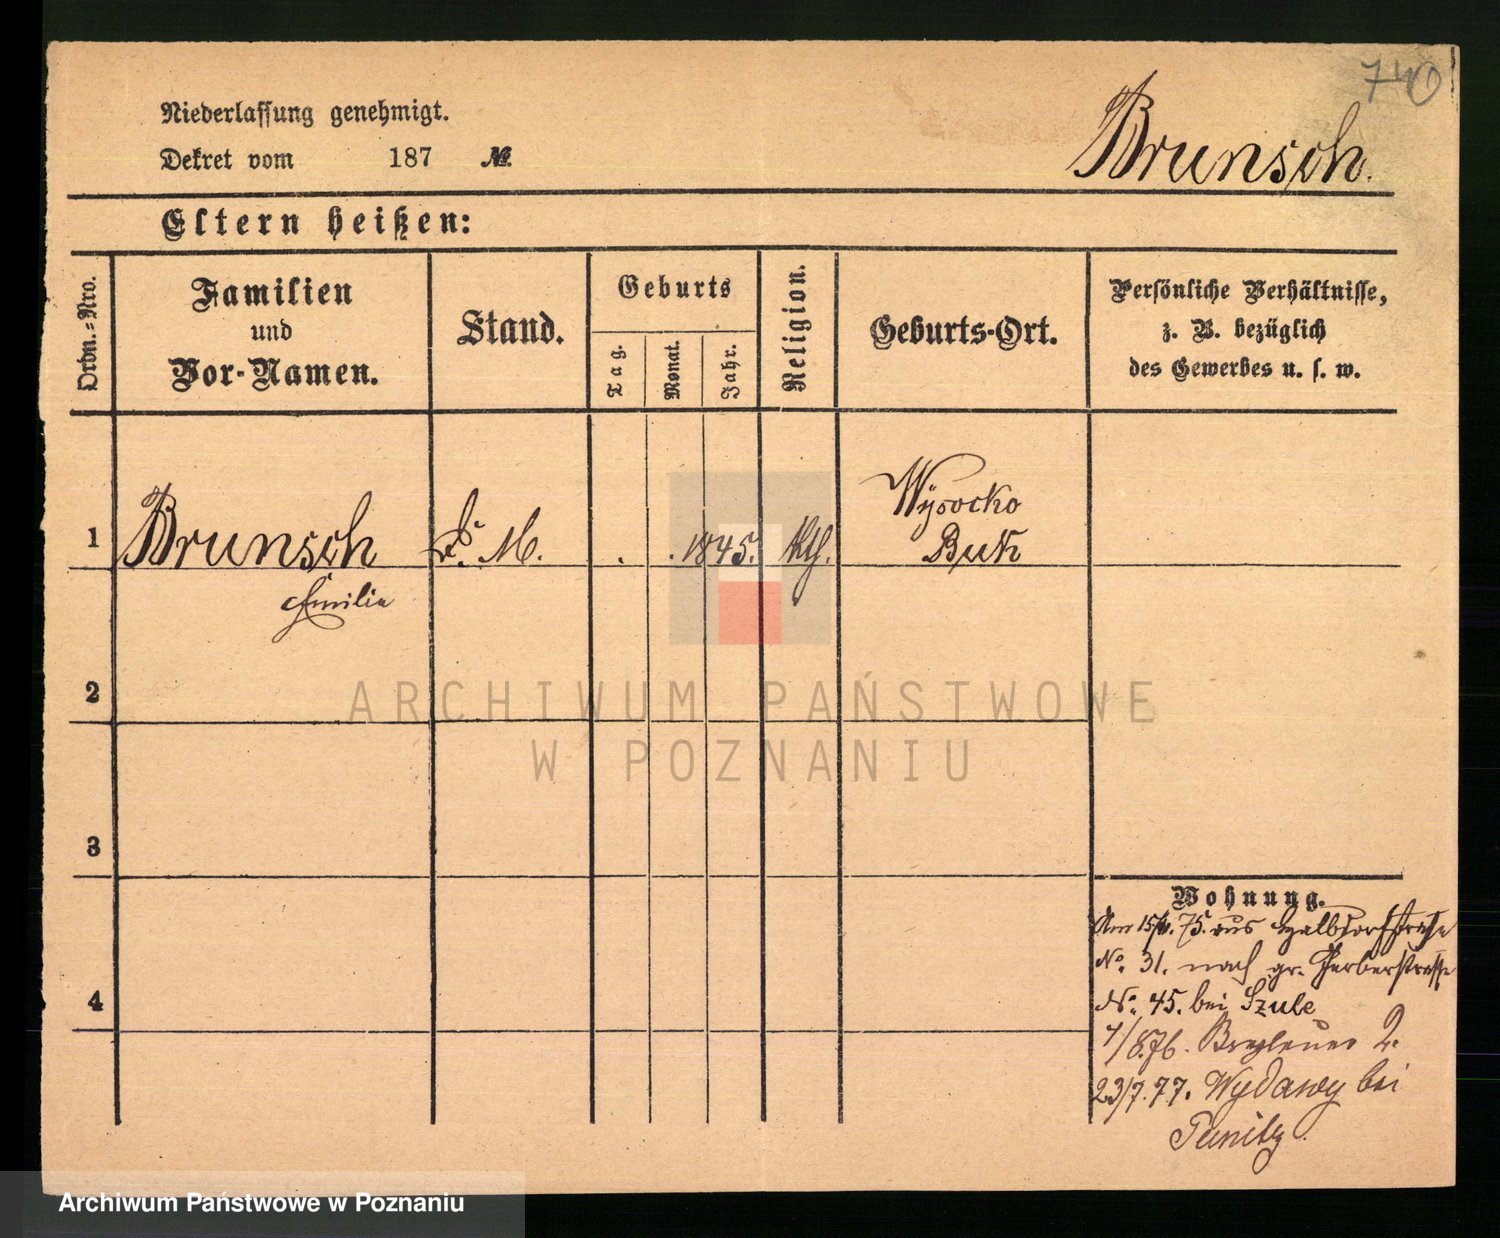 740
Niederlassung genehmigt.
Brunsch.
Dekret vom 187 №.
Eltern heißen:
Ordn.-Nro.
Familien
und
Vor-Namen.
Stand.
Geburts
Tag.
Monat.
Jahr.
Religion.
Geburts-Ort.
Persönliche Verhältnisse,
z. B. bezüglich
des Gewerbes u. s. w.
1 Brunsch d. M. 1845. kth. Wysocko
Buk
Emilie
2
ARCHIWUM PAŃSTWOWE
W POZNANIU
3
4
Wohnung.
Am 75. aus Halbdorfstrasse
No. 31. nach gr. Gerberstrasse
No. 45. bei Szulc
1/8.76. Breslauer 2.
23/7.77. Wydawy bei
Punitz.
Archiwum Państwowe w Poznaniu